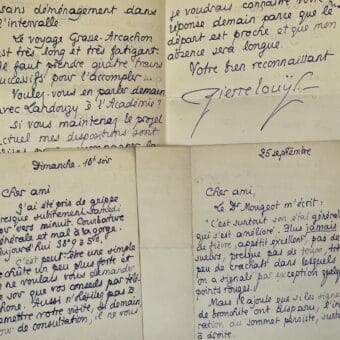 sans déménagement dans
l'intervalle.
Le voyage Grasse-Arcachon
est très long et très fatigant.
faut prendre quatre trains
successifs pour l'accomplir
Voulez-vous en parler demain
avec Landouzy à l'Académie?
Si vous maintenez le projet
actuel mes dispositions sont
je voudrais connaître
réponse demain parce que le
départ est proche et que mon
absence sera longue.
Votre bien reconnaissant
Pierre Louÿs
Dimanche. 10h soir
Cher ami
J'ai été pris de grippe
presque subitement samedi
vers minuit. Courbature
générale et mal à la gorge.
Aujourd'hui 38°9 à 5h,
C'est peut-être une simple
un peu plus forte et
je ne voulais vous demander
ce soir que vos conseils par télé-
phone. Aussi n'hésitez pas à
remettre votre visite, si demain,
jour de consultation, il ne vous
25 septembre
Cher ami,
Le Dr Mougeot m'écrit :
"C'est surtout son état général
qui s'est amélioré. Plus jamais
de fièvre, appétit excellent, pas de
sueurs, presque pas de toux, très
peu de crachats dans lesquels
on a signalé par exception quelques
points rouges.
Mais j'ajoute que si les signes
de bronchite ont disparu, l'indu-
ration au sommet persiste, surtout
à droite.